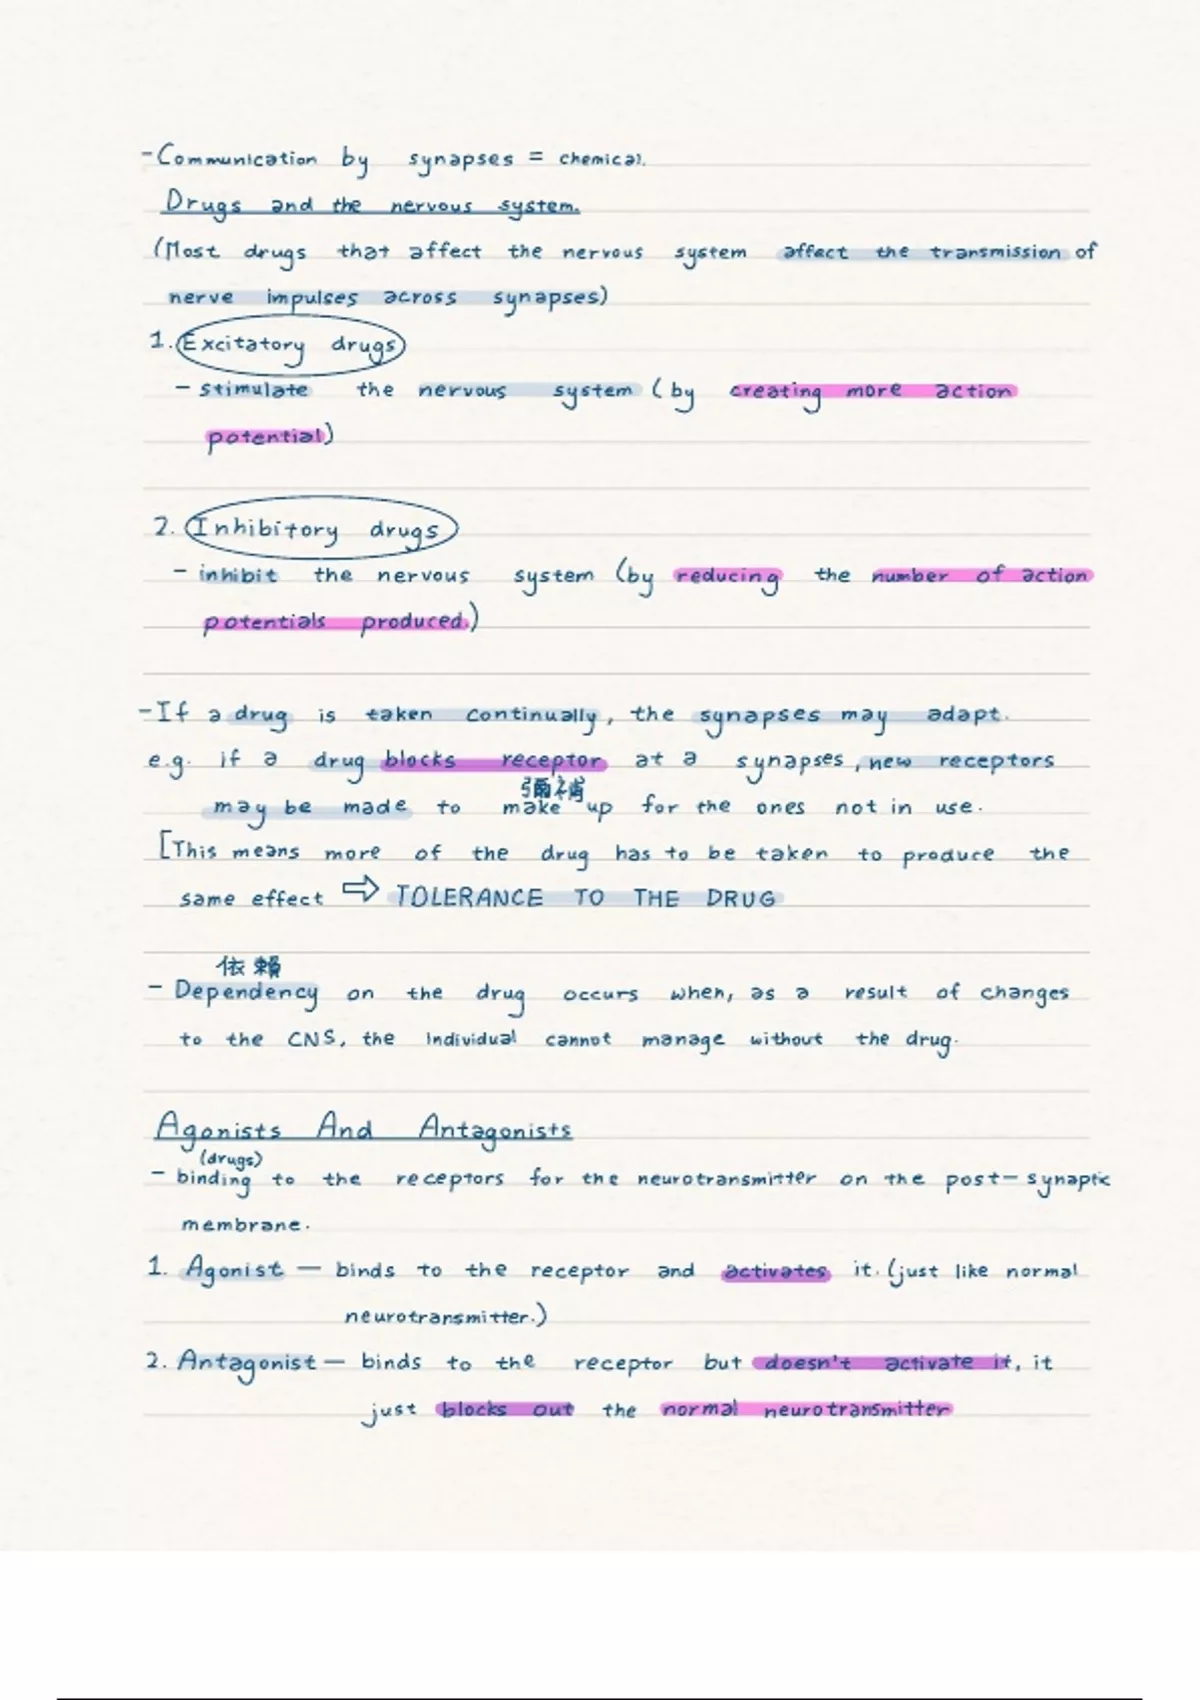 -Communication by synapses = chemical.
Drugs and the nervous system.
(Most drugs that affect the nervous system affect the transmission of
nerve impulses across synapses)
1. Excitatory drugs
- stimulate the nervous system (by creating more action
potential)
2. Inhibitory drugs
- inhibit the nervous system (by reducing the number of action
potentials produced.)
-If a drug is taken continually, the synapses may adapt.
e.g. if a drug blocks receptor at a synapses, new receptors
彌補
may be made to make up for the ones not in use.
[This means more of the drug has to be taken to produce the
same effect ⇨ TOLERANCE TO THE DRUG
依賴
- Dependency on the drug occurs when, as a result of changes
to the CNS, the individual cannot manage without the drug.
Agonists And Antagonists
(drugs)
- binding to the receptors for the neurotransmitter on the post-synaptic
membrane.
1. Agonist — binds to the receptor and activates it. (just like normal
neurotransmitter.)
2. Antagonist — binds to the receptor but doesn't activate it, it
just blocks out the normal neurotransmitter